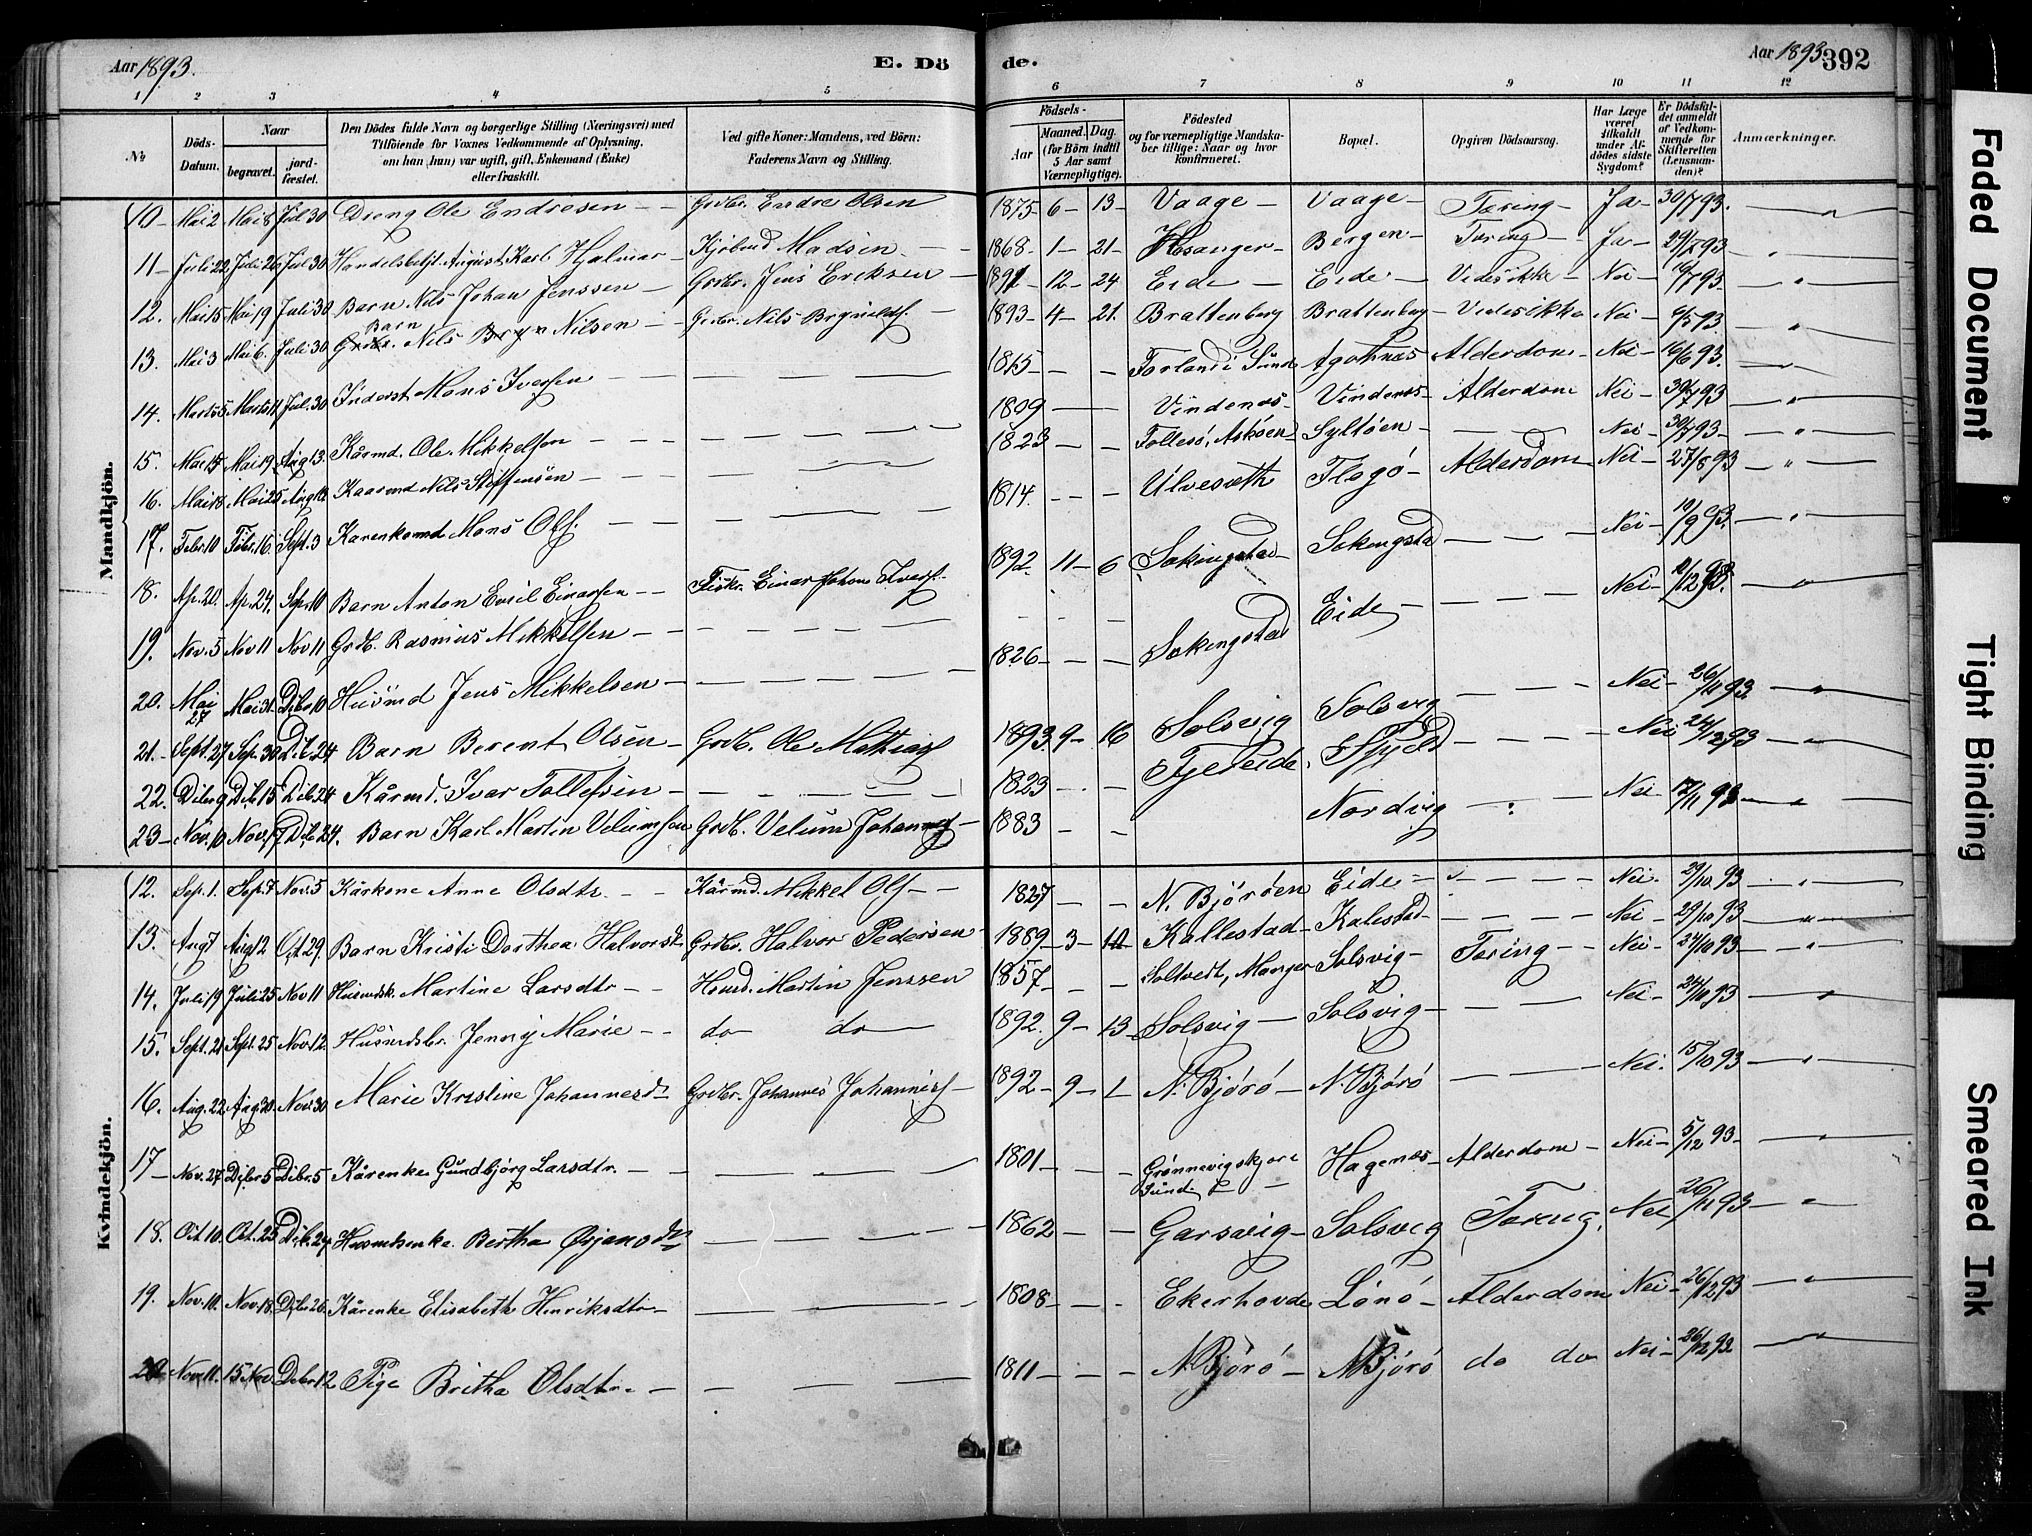 Aar 1893. E. Dö de. Aar 1893 392
1 2 3 4 5 6 7 8 9 10 11 12
No Döds-Datum. Naar begravet. jordfæstet. Den Dödes fulde Navn og borgerlige Stilling (Næringsvei) med Tilföiende for Voxnes Vedkommende af Oplysning, om han (hun) var ugift, gift, Enkemand (Enke) eller fraskilt. Ved gifte Koner: Mandens, ved Börn: Faderens Navn og Stilling. Födsels- Aar Maaned. Dag. (for Börn indtil 5 Aar samt Værnepligtige). Födested og for værnepligtige Mandskaber tillige: Naar og hvor konfirmeret. Bopæl. Opgiven Dödsaarsag. Har Læge været tilkaldt under Afdödes sidste Sygdom? Er Dödsfaldet anmeldt af Vedkommende for Skifteretten (Lensmanden)? Anmærkninger.
Mandkjön.
10 Mai 2 Mai 8 Jul 30 Dreng Ole Endresen Grdbr. Endre Olsen 1875 6 13 Vaage Vaage Tæring Ja 30/7 93.
11 Juli 22 Juli 26 Juli 30 Handelsbetjt. August Karl Hjalmar Madsen 1868 1 21 Hesanger Bergen Tæring Ja 29/7 93
12. Mai 15 Mai 19 Juli 30 Barn Nils Johan Jenssen Grdbr. Jens Eriksen 1891 12 24 Eide Eide Vides ikke Nei /7 93.
13. Mai 3 Mai 6. Juli 30 Barn Nils Nilsen Grdbr. Nils Brynildsf. 1893 4 21. Brattenberg Brattenberg Vides ikke Nei 6/5 93.
14. Marts 5 Marts 11 Jul. 30 Inderst Mons Iversen 1815 Forland i Sund Agotnæs Alderdom Nei 16/6 93.
15. Mai 15 Mai 19 Aug 13. Kårmd. Ole Mikkelsen 1809 Vindenæs Vindenæs Alderdom Nei 30/7 93
16. Mai 18 Mai 25 Aug Kaarmd Nils Steffensen 1823 Follesö, Asköen Syltöen Nei 30/7 93
17. Febr. 10 Febr. 16. Sept. 3 Mons Ols. 1814. Ulvesæth Flogö Alderdom Nei 27/8 93
18. Ap. 20. Ap. 24. Sep. 10 Barn Anton Emil Einarsen Fiskr. Einar Johan Ivers. 1892. 11 6 Sekingstad Sekingstad Nei 10/9 93.
19. Nov. 5 Nov 11 Nov 11 Grdb. Rasmus Mikkelsen Eide Nei /12 93.
20. Mai 27 Mai 31. Dcbr 10 Husmd Jens Mikkelsen 1826 Sekingstad Nei 26/11 93
21. Sept. 27 Sep. 30 Dcb. 24 Barn Berent Olsen Grdb. Ole Mathias 1893. 9 16 Solsvig Solsvig Nei 24/12 93
22. Dcbr 9 Dcb 15 Dcb 24 Kårmd. Ivar Tollefsen 1823 Tjeldeide Nei
23 Nov. 10 Nov. 17 Dcb. 24. Barn Karl Martin Veliumsen Grdb. Velium Johannes 1883 Nordvig Nei 12/11 93
Kvindekjön.
12. Sep. 1. Sept. 7 Nov. 5 Kårkone Anne Olsdtr. Kårmd. Mikkel Ols 1827 N. Björöen Eide Nei. 29/10 93
13. Aug 7 Aug 12 Oct 29. Barn Kristi Dorthea Halvorsdt Grdbr. Halvor Pedersen 1889 3 10 Kallestad Kalestad Nei 29/10 93
14. Juli 19 Juli 25 Nov 11 Husmdsk. Martine Larsdtr Husmd. Martin Jenssen 1857 Soltvedt, Manger Solsvig Tæring Nei 24/10 93
15. Sept. 21 Sept. 25 Nov 12. Husmdsbr. Jenny Marie do do 1892. 9 13 Solsvig Solsvig Nei 24/10 93
16. Aug. 22 Aug 30 Nov 30 Marie Kristine Johannesdt Grdbr. Johannes Johanness 1892 9 1 N. Björö N. Björö Nei. 15/10 93
17 Nov. 27 Dcbr 5 Dcbr. 5 Kårenke Gundbjörg Larsdtr. 1801 Grönnevigskjær i Sund Hagenæs Alderdom Nei 5/12 93
18. Oct 10. Oct. 25 Dcb. 24 Husmdsenke Bertha Örjansdtr 1862 Garsvig Solsvig Tæring. Nei 26/11 93
19. Nov. 10. Nov. 18. Dcbr 26. Kårenke Elisabeth Henriksdtr 1808 Ekerhovde Lönö Alderdom Nei 26/12 93
20 Nov. 11. 15 Nov Dcbr. 12 Pige Britha Olsdtr. 1811 N. Björö N. Björö do do Nei 26/12 93.
Faded Document
Tight Binding
Smeared Ink